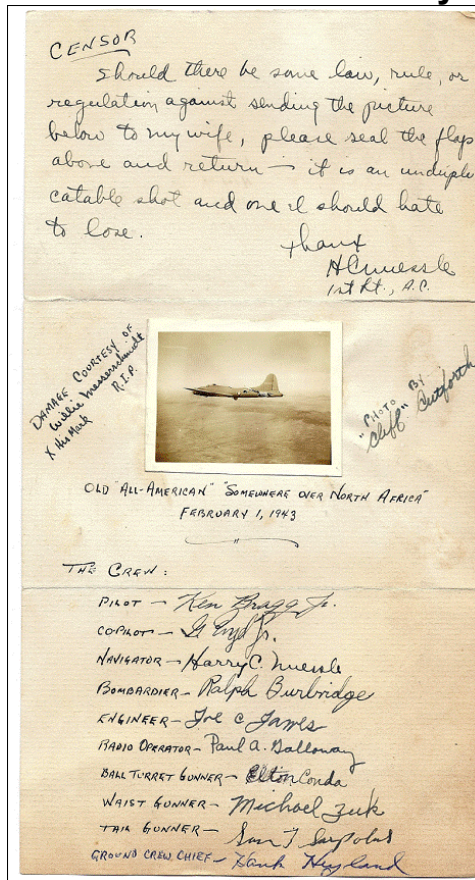 CENSOR
Should there be some law, rule, or
regulation against sending the picture
below to my wife, please seal the flaps
above and return — it is an undupli
catable shot and one I should hate
to lose.
Thanx
HCNuessle
1st Lt., A.C.
DAMAGE COURTESY OF
Willie Messerschmidt
X His Mark R.I.P.
"PHOTO BY
"Cliff" Cutforth
OLD "ALL-AMERICAN" "SOMEWHERE OVER NORTH AFRICA"
FEBRUARY 1, 1943
THE CREW:
PILOT — Ken Bragg Jr.
COPILOT — Jr.
NAVIGATOR — Harry C. Nuessle
BOMBARDIER — Ralph Burbridge
ENGINEER — Joe C James
RADIO OPERATOR — Paul A. Galloway
BALL TURRET GUNNER — Elton Conda
WAIST GUNNER — Michael Zuk
TAIL GUNNER — Sam T Sarpolus
GROUND CREW CHIEF — Hank Hyland